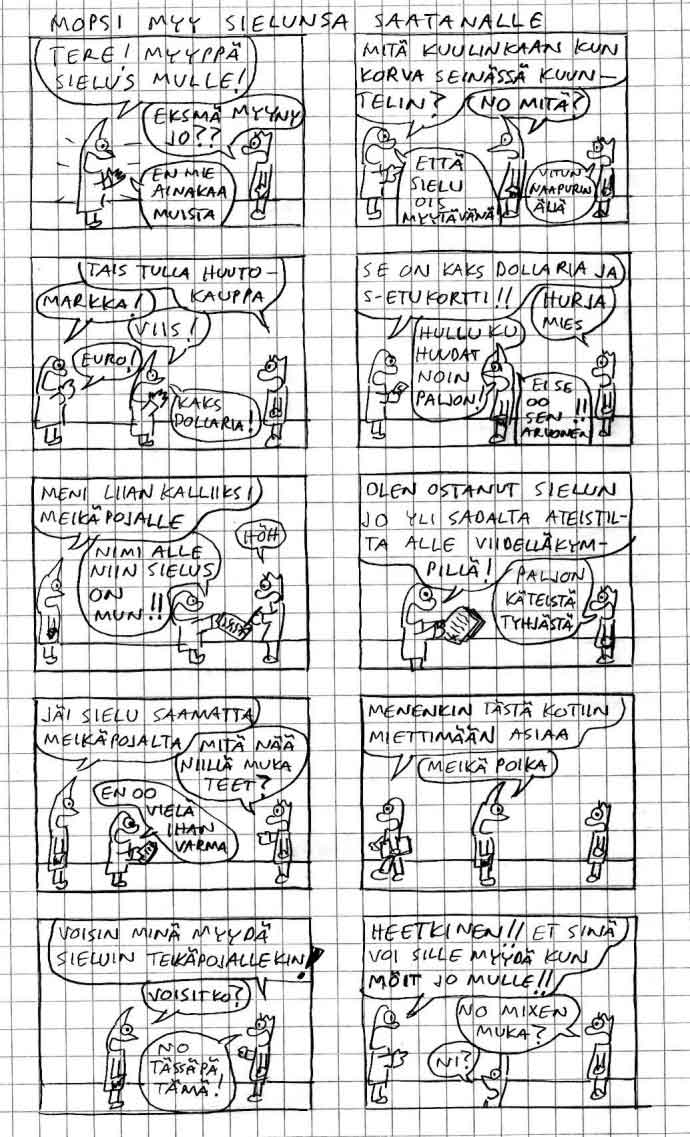 MOPSI MYY SIELUNSA SAATANALLE
TERE! MYYPPÄ
SIELUS MULLE!
EKSMÄ MYYNY
JO??
EN MIE
AINAKAA
MUISTA
MITÄ KUULINKAAN KUN
KORVA SEINÄSSÄ KUUN-
TELIN?
NO MITÄ?
ETTÄ
SIELU
OIS
MYYTÄVÄNÄ
VITUN
NAAPURIN
ÄIJÄ
TAIS TULLA HUUTO-
KAUPPA
MARKKA!
VIIS!
EURO!
KAKS
DOLLARIA!
SE ON KAKS DOLLARIA JA
S-ETUKORTTI!!
HURJA
MIES
HULLU KU
HUUDAT
NOIN
PALJON!
EI SE
OO
SEN !!
ARVONEN
MENI LIIAN KALLIIKSI
MEIKÄPOJALLE
HÖH
NIMI ALLE
NIIN SIELUS
ON
MUN!!
OLEN OSTANUT SIELUN
JO YLI SADALTA ATEISTIL-
TA ALLE VIIDELLÄKYM-
PILLÄ!
PALJON
KÄTEISTÄ
TYHJÄSTÄ
JÄI SIELU SAAMATTA
MEIKÄPOJALTA
MITÄ NÄÄ
NIILLÄ MUKA
TEET?
EN OO
VIELÄ
IHAN
VARMA
MENENKIN TÄSTÄ KOTIIN
MIETTIMÄÄN ASIAA
MEIKÄ POIKA
VOISIN MINÄ MYYDÄ
SIELUIN TEIKÄPOJALLEKIN!
VOISITKO?
NO
TÄSSÄPÄ
TÄMÄ!
HEETKINEN!! ET SINÄ
VOI SILLE MYYDÄ KUN
MÖIT JO MULLE!!
NO MIXEN
MUKA?
NI?